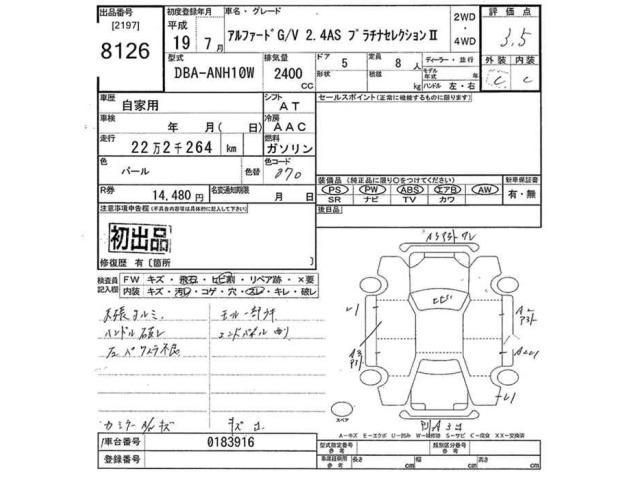 出品番号
[2197]
8126
初度登録年月
平成
19年 7月
車名・グレード
アルファードG/V 2.4AS プラチナセレクションⅡ
2WD
・
4WD
評価点
3.5
外装 内装
C C
型式
DBA-ANH10W
排気量
2400
CC
ドア
形状
5
定員
8人
kg
ディーラー・並行
モデル年式 年
ハンドル 左・右
車歴
自家用
シフト
AT
セールスポイント(正常に機能するものに限ります)
車検
年 月( 日)
冷房
AAC
走行
22万2千264 km
燃料
ガソリン
色
パール
色替
色コード
070
装備品(純正品に限り○をつけてください)
PS PW ABS エアB AW
SR ナビ TV カワ
新車保証書
有・無
R券
14,480円
名変通知期限
月 日
後日品
注意事項申告欄(不具合内容は具体的に記入して下さい)
初出品
修復歴 有〔箇所 〕
検査員
記入欄
FW キズ・飛石・ヒビ割・リペア跡・×要
内装 キズ・汚レ・コゲ・穴・スレ・キレ・破レ
スペア
A-キズ E-エクボ U-凹み W-補修跡 S-サビ C-腐食 XX-交換済
車台番号
0183916
登録番号
型式指定番号
参考
類別区分番号
参考
車庫証明用
参考
長さ cm 幅 cm 高さ cm